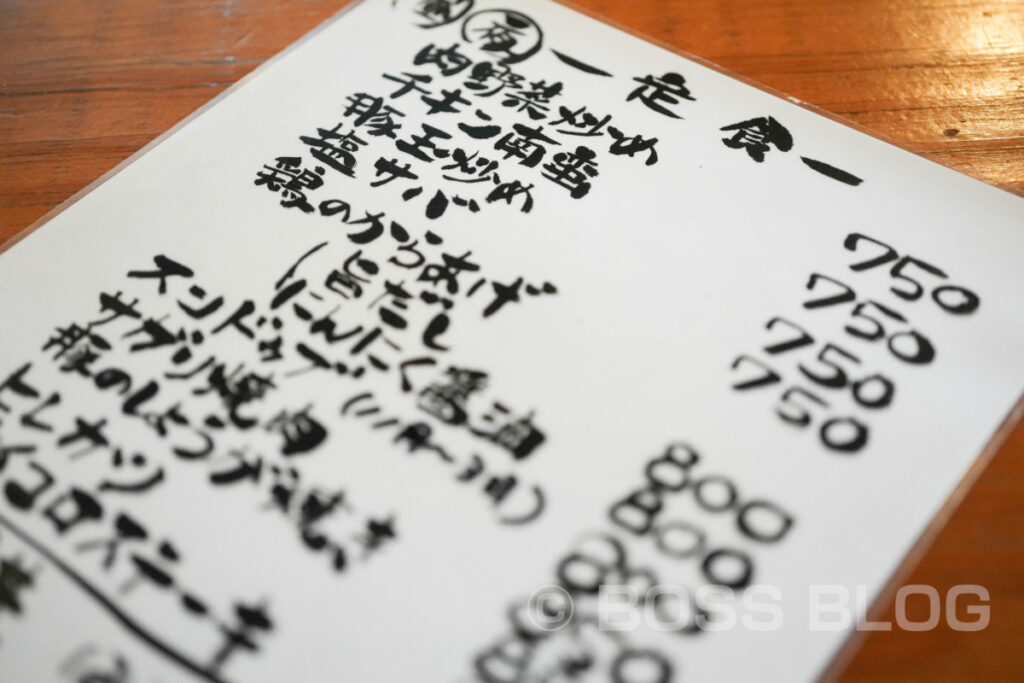 一定食一
肉野菜炒め 750
チキン南蛮 750
豚玉炒め 750
塩サバ 750
鶏のからあげ 800
(旨だし
にんにく醤油)
スンドゥブ(12月〜3月) 800
サガリ焼肉
豚のしょうが焼き
ヒレカツ
コロステーキ
© BOSS BLOG